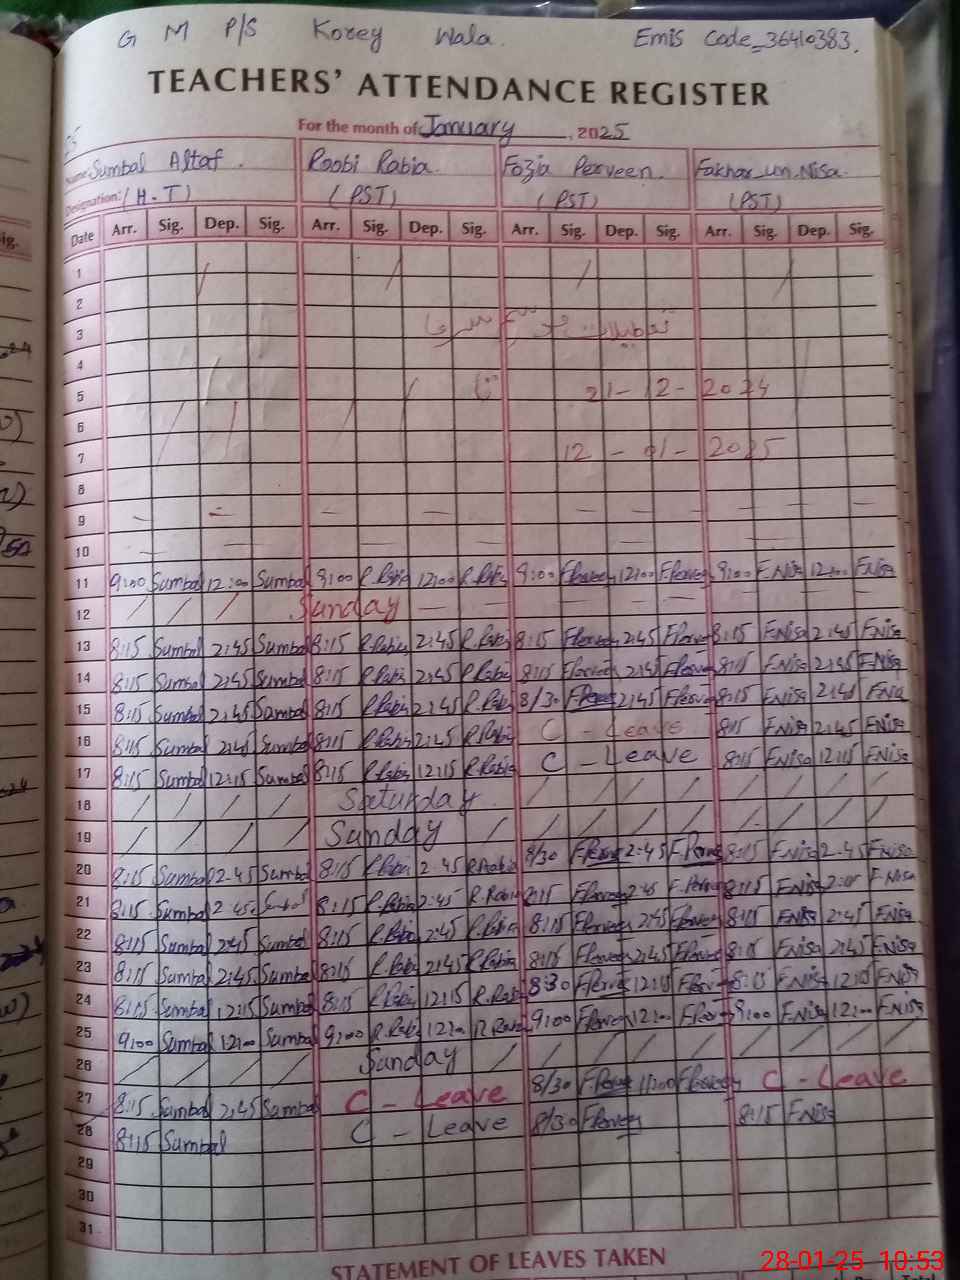 G M P/S Korey Wala. Emis Code_36410383.
TEACHERS' ATTENDANCE REGISTER
For the month of January, 2025
Name: Sumbal Altaf. Roobi Rabia. Fozia Perveen. Fakhar_un_Nisa.
Designation: (H.T) (PST) (PST) (PST)
Date Arr. Sig. Dep. Sig. Arr. Sig. Dep. Sig. Arr. Sig. Dep. Sig. Arr. Sig. Dep. Sig.
1
2
3 تعطیلات
4
5 21-12-2024
6
7 12-01-2025
8
9
10
11 9:00 Sumbal 12:00 Sumbal 9:00 R.Rabia 12:00 R.Rabia 9:00 F.Perveen 12:00 F.Perveen 9:00 F.Nisa 12:00 F.Nisa
12 Sunday
13 8:15 Sumbal 2:45 Sumbal 8:15 R.Rabia 2:45 R.Rabia 8:15 F.Perveen 2:45 F.Perveen 8:15 F.Nisa 2:45 F.Nisa
14 8:15 Sumbal 2:45 Sumbal 8:15 R.Rabia 2:45 R.Rabia 8:15 F.Perveen 2:45 F.Perveen 8:15 F.Nisa 2:45 F.Nisa
15 8:15 Sumbal 2:45 Sumbal 8:15 R.Rabia 2:45 R.Rabia 8/30 F.Perveen 2:45 F.Perveen 8:15 F.Nisa 2:45 F.Nisa
16 8:15 Sumbal 2:45 Sumbal 8:15 R.Rabia 2:45 R.Rabia C - Leave 8:15 F.Nisa 2:45 F.Nisa
17 8:15 Sumbal 12:15 Sumbal 8:15 R.Rabia 12:15 R.Rabia C - Leave 8:15 F.Nisa 12:15 F.Nisa
18 Saturday
19 Sunday
20 8:15 Sumbal 2-45 Sumbal 8:15 R.Rabia 2-45 R.Rabia 8/30 F.Perveen 2:45 F.Perveen 8:15 F.Nisa 2-45 F.Nisa
21 8:15 Sumbal 2 45 Sumbal 8:15 R.Rabia 2:45 R.Rabia 8:15 F.Perveen 2:45 F.Perveen 8:15 F.Nisa F.Nisa
22 8:15 Sumbal 2:45 Sumbal 8:15 R.Rabia 2:45 R.Rabia 8:15 F.Perveen 2:45 F.Perveen 8:15 F.Nisa 2:45 F.Nisa
23 8:15 Sumbal 2:45 Sumbal 8:15 R.Rabia 2:45 R.Rabia 8:15 F.Perveen 2:45 F.Perveen 8:15 F.Nisa 2:45 F.Nisa
24 8:15 Sumbal 12:15 Sumbal 8:15 R.Rabia 12:15 R.Rabia 8:30 F.Perveen 12:15 F.Perveen 8:15 F.Nisa 12:15 F.Nisa
25 9:00 Sumbal 12:00 Sumbal 9:00 R.Rabia 12:00 R.Rabia 9:00 F.Perveen 12:00 F.Perveen 9:00 F.Nisa 12:00 F.Nisa
26 Sunday
27 8:15 Sumbal 2:45 Sumbal C - Leave 8/30 F.Perveen 11:00 F.Perveen C - Leave
28 8:15 Sumbal C - Leave 8/30 F.Perveen 8:15 F.Nisa
29
30
31
STATEMENT OF LEAVES TAKEN
28-01-25 10:53